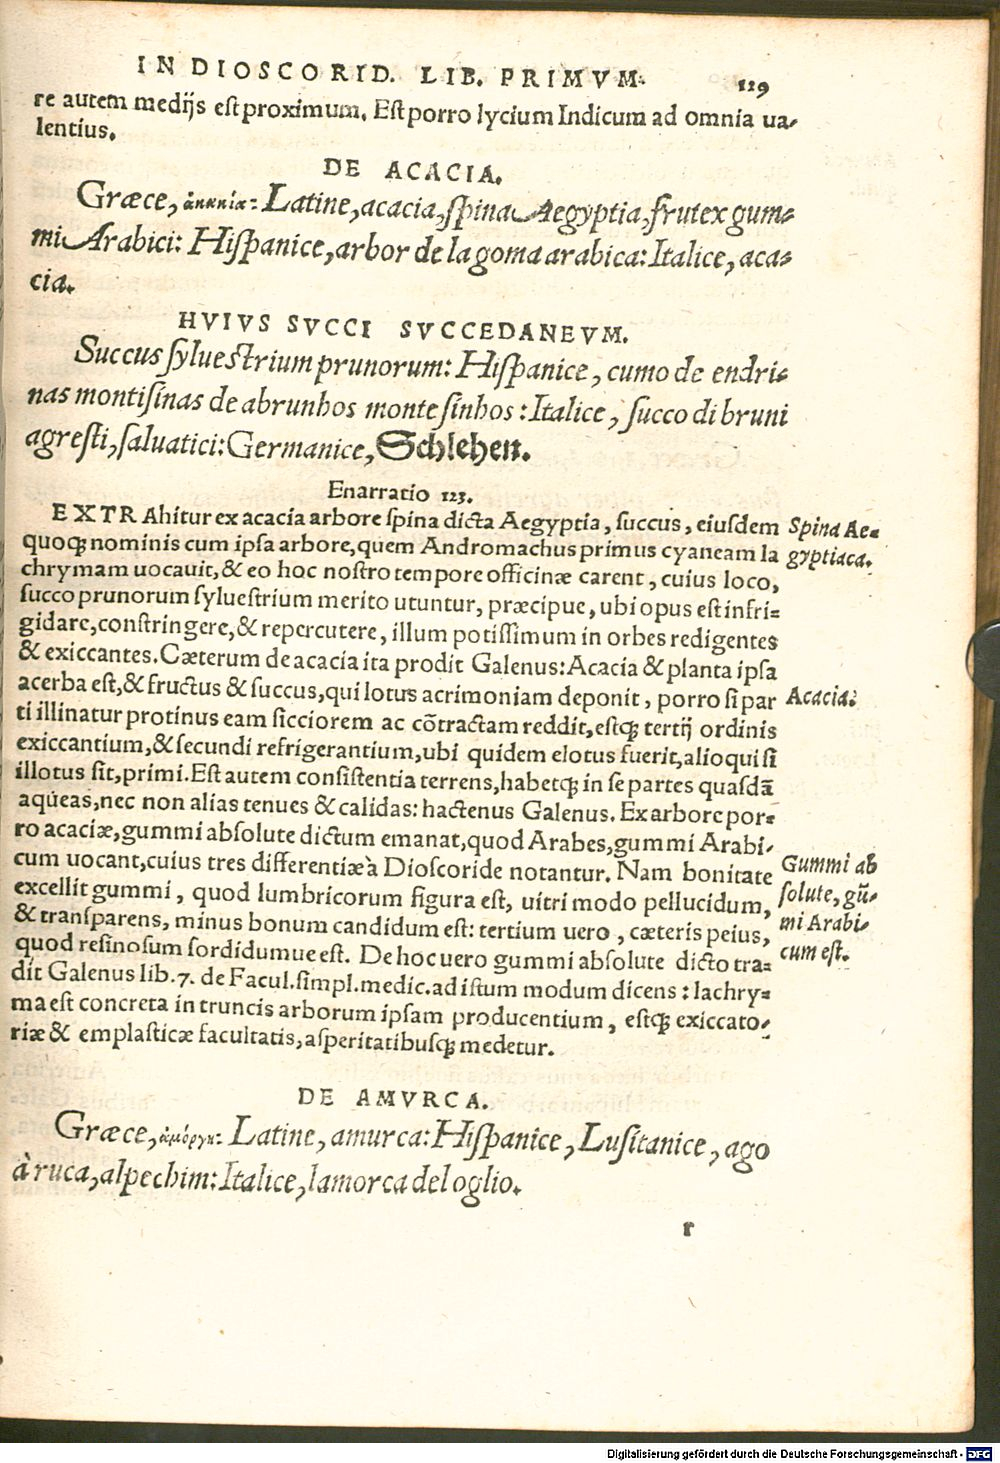 IN DIOSCORID. LIB. PRIMVM. 129
re autem medijs est proximum. Est porro lycium Indicum ad omnia ua-
lentius.
DE ACACIA.
Græce, ἀκακία: Latine, acacia, spina Aegyptia, frutex gum-
mi Arabici: Hispanice, arbor de la goma arabica: Italice, aca-
cia.
HVIVS SVCCI SVCCEDANEVM.
Succus syluestrium prunorum: Hispanice, cumo de endri-
nas montisinas de abrunhos montesinhos: Italice, succo di bruni
agresti, saluatici: Germanice, Schlehen.
Enarratio 123.
EXTRAhitur ex acacia arbore spina dicta Aegyptia, succus, eiusdem
Spina Ae-
quoq; nominis cum ipsa arbore, quem Andromachus primus cyaneam la
gyptiaca.
chrymam uocauit, & eo hoc nostro tempore officinæ carent, cuius loco,
succo prunorum syluestrium merito utuntur, præcipue, ubi opus est infri-
gidare, constringere, & repercutere, illum potissimum in orbes redigentes
& exiccantes. Cæterum de acacia ita prodit Galenus: Acacia & planta ipsa
acerba est, & fructus & succus, qui lotus acrimoniam deponit, porro si par
Acacia.
ti illinatur protinus eam sicciorem ac cōtractam reddit, estq; tertij ordinis
exiccantium, & secundi refrigerantium, ubi quidem elotus fuerit, alioqui si
illotus sit, primi. Est autem consistentia terrens, habetq; in se partes quasdā
aqueas, nec non alias tenues & calidas: hactenus Galenus. Ex arbore por-
ro acaciæ, gummi absolute dictum emanat, quod Arabes, gummi Arabi-
cum uocant, cuius tres differentiæ à Dioscoride notantur. Nam bonitate
Gummi ab
excellit gummi, quod lumbricorum figura est, uitri modo pellucidum,
solute, gū-
& transparens, minus bonum candidum est: tertium uero, cæteris peius,
mi Arabi-
quod resinosum sordidumue est. De hoc uero gummi absolute dicto tra-
cum est.
dit Galenus lib. 7. de Facul. simpl. medic. ad istum modum dicens: lachry-
ma est concreta in truncis arborum ipsam producentium, estq; exiccato-
riæ & emplasticæ facultatis, asperitatibusq; medetur.
DE AMVRCA.
Græce, ἀμόργη: Latine, amurca: Hispanice, Lusitanice, ago
à ruca, alpechim: Italice, lamorca del oglio.
r
Digitalisierung gefördert durch die Deutsche Forschungsgemeinschaft - DFG